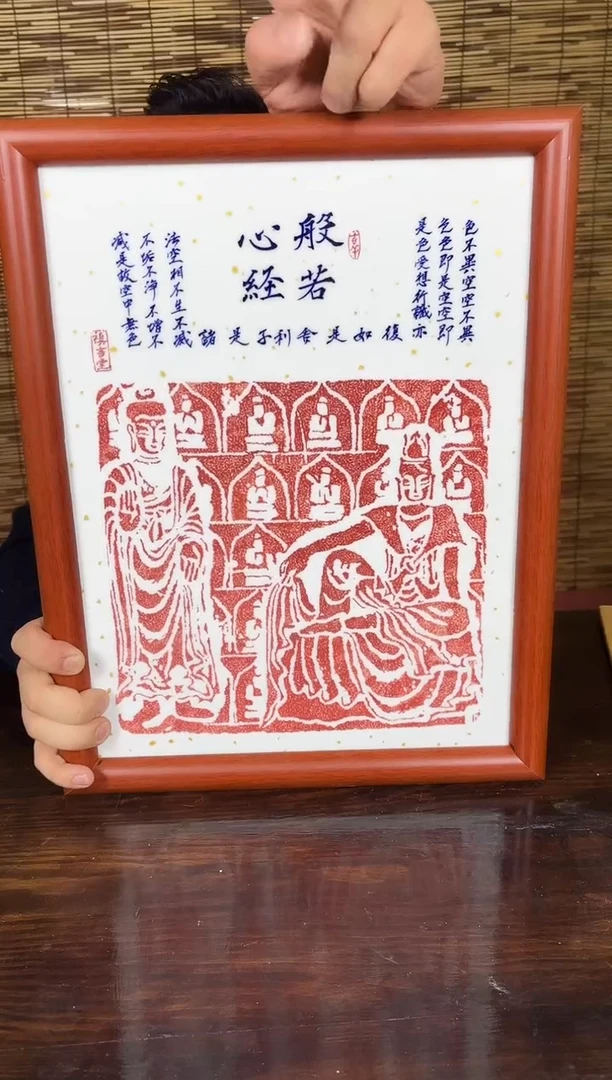 般若
心経
色不異空空不異
色色即是空空即
是色受想行識亦
復如是舍利子是諸
法空相不生不滅
不垢不淨不增不
減是故空中無色